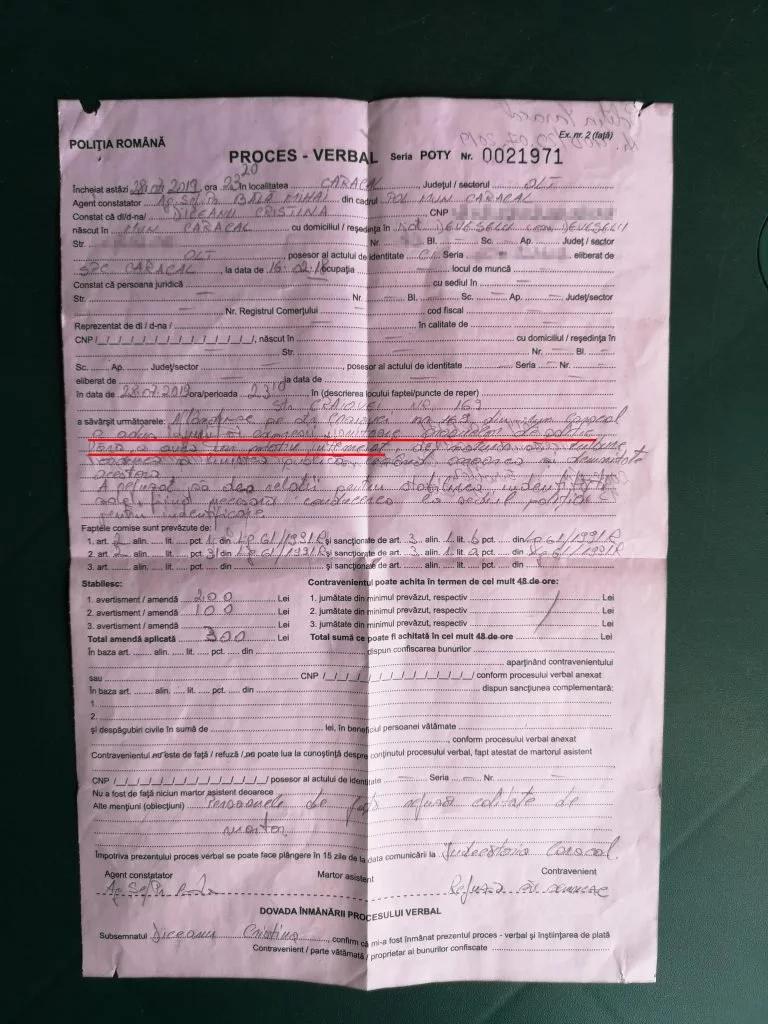 Ex. nr. 2 (față)
POLIȚIA ROMÂNĂ
PROCES - VERBAL Seria POTY Nr. 0021971
Încheiat astăzi 2019 ora 23 20 în localitatea CARACAL Județul / sectorul OLT
Agent constatator Ag. Șef. BĂLĂ MIHAI din cadrul POL MUN CARACAL
Constat că dl/d-na/ DICEANU CRISTINA CNP
născut în MUN CARACAL cu domiciliu / reședința în DEVESELU com. DEVESELU
Str. Nr. Bl. Sc. Ap. Județ / sector
OLT posesor al actului de identitate CI Seria eliberat de
SPC CARACAL, la data de 16. 02. 18 ocupația locul de muncă
Constat că persoana juridică cu sediul în
Str. Nr. Bl. Sc. Ap. Județ/sector
Nr. Registrul Comerțului cod fiscal
Reprezentat de dl / d-na / în calitate de
CNP /_/_/_/_/_/_/_/_/_/_/_/_/_/, născut în cu domiciliu / reședința în
Str. Nr. Bl.
Sc. Ap. Județ/sector posesor al actului de identitate Seria Nr.
eliberat de la data de
în data de 2019 ora/perioada 23 10, în (descrierea locului faptei/puncte de reper)
Str. CRAIOVEI NR. 163
a săvârșit următoarele: pe str. Craiovei nr. 163 din mun Caracal
a adus de poliție
fără a avea un motiv întemeiat, de natură să tulbure
ordinea și liniștea publică, și demnitatea
acestora
A refuzat să dea relații pentru stabilirea identității
sale, fiind necesară conducerea la sediul poliției
pentru identificare.
Faptele comise sunt prevăzute de:
1. art. 2 alin. lit. pct. 1 din Lp 61/1991R și sancționate de art. 3 alin. 1 lit. b pct. din Lp 61/1991R
2. art. 2 alin. lit. pct. 31 din Lp 61/1991R și sancționate de art. 3 alin. 1 lit. a pct. din Lp 61/1991R
3. art. alin. lit. pct. din și sancționate de art. alin. lit. pct. din
Stabilesc: Contravenientul poate achita în termen de cel mult 48 de ore:
1. avertisment / amendă 200 Lei 1. jumătate din minimul prevăzut, respectiv Lei
2. avertisment / amendă 100 Lei 2. jumătate din minimul prevăzut, respectiv Lei
3. avertisment / amendă Lei 3. jumătate din minimul prevăzut, respectiv Lei
Total amendă aplicată 300 Lei Total sumă ce poate fi achitată în cel mult 48 de ore Lei
În baza art. alin. lit. pct. din dispun confiscarea bunurilor
aparținând contravenientului
sau CNP /_/_/_/_/_/_/_/_/_/_/_/_/_/ conform procesului verbal anexat
În baza art. alin. lit. pct. din dispun sancțiunea complementară:
1.
2.
și despăgubiri civile în sumă de lei, în beneficiul persoanei vătămate
, conform procesului verbal anexat
Contravenientul nu este de față / refuză / nu poate lua la cunoștință despre conținutul procesului verbal, fapt atestat de martorul asistent
CNP /_/_/_/_/_/_/_/_/_/_/_/_/_/ posesor al actului de identitate Seria Nr.
Nu a fost de față niciun martor asistent deoarece
Alte mențiuni (obiecțiuni) Persoanele de față refuză calitate de
martor.
Împotriva prezentului proces verbal se poate face plângere în 15 zile de la data comunicării la Judecătoria Caracal.
Agent constatator Martor asistent Contravenient
Ag. Șef. Refuză să semneze
DOVADA ÎNMÂNĂRII PROCESULUI VERBAL
Subsemnatul Diceanu Cristina, confirm că mi-a fost înmânat prezentul proces - verbal și înștiințarea de plată
Contravenient / parte vătămată / proprietar al bunurilor confiscate